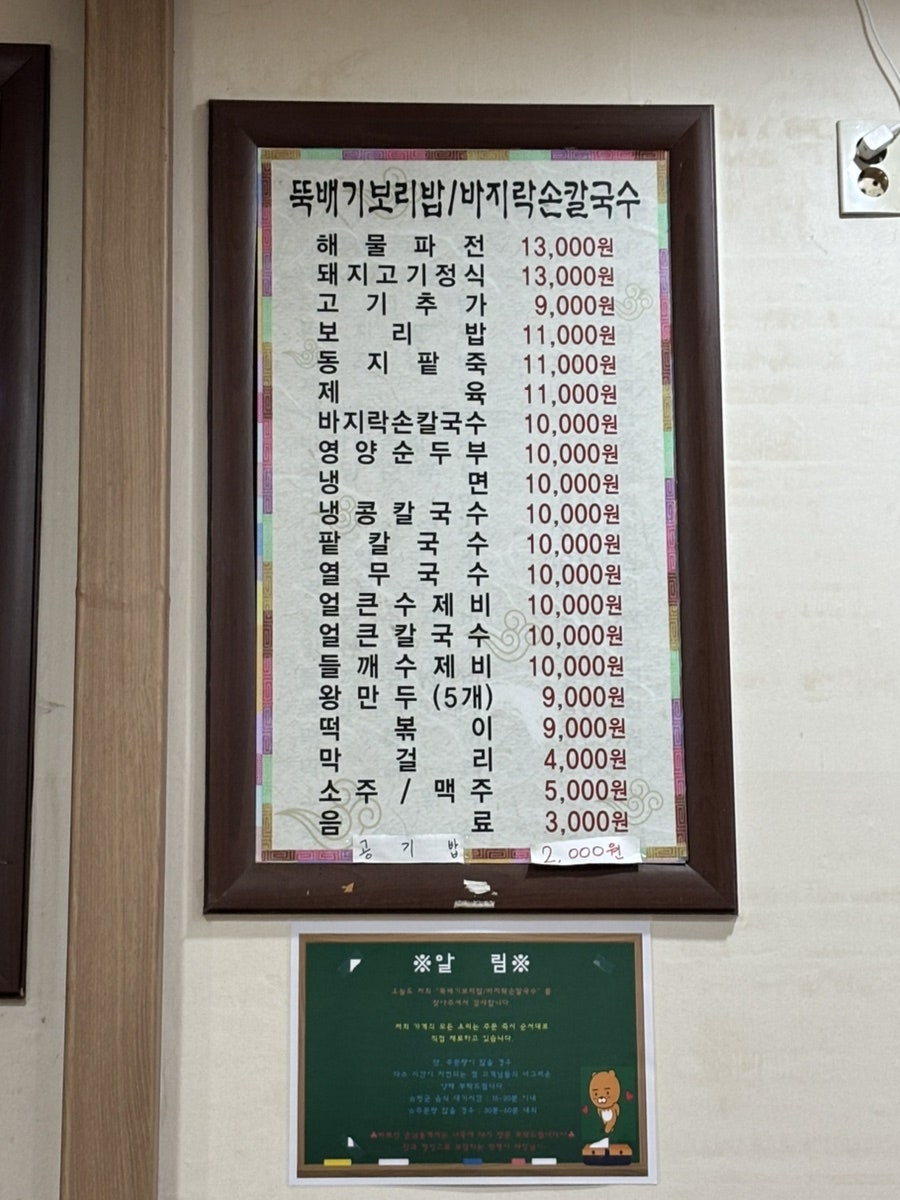 뚝배기보리밥/바지락손칼국수
해물파전 13,000원
돼지고기정식 13,000원
고기추가 9,000원
보리밥 11,000원
동지팥죽 11,000원
제육 11,000원
바지락손칼국수 10,000원
영양순두부 10,000원
냉면 10,000원
냉콩칼국수 10,000원
팥칼국수 10,000원
열무국수 10,000원
얼큰수제비 10,000원
얼큰칼국수 10,000원
들깨수제비 10,000원
왕만두(5개) 9,000원
떡볶이 9,000원
막걸리 4,000원
소주/맥주 5,000원
음료 3,000원
공기밥 2,000원
※알 림※
오늘도 저희 "뚝배기보리밥/바지락손칼국수" 를
찾아주셔서 감사합니다.
저희 가게의 모든 요리는 주문 즉시 순서대로
직접 재료하고 있습니다.
단, 주문량이 많을 경우
다소 시간이 지연되는 점 고객님들의 너그러운
양해 부탁드립니다
☆평균 음식 대기시간 : 15~20분 이내
☆주문량 많을 경우 : 30분~50분 내외